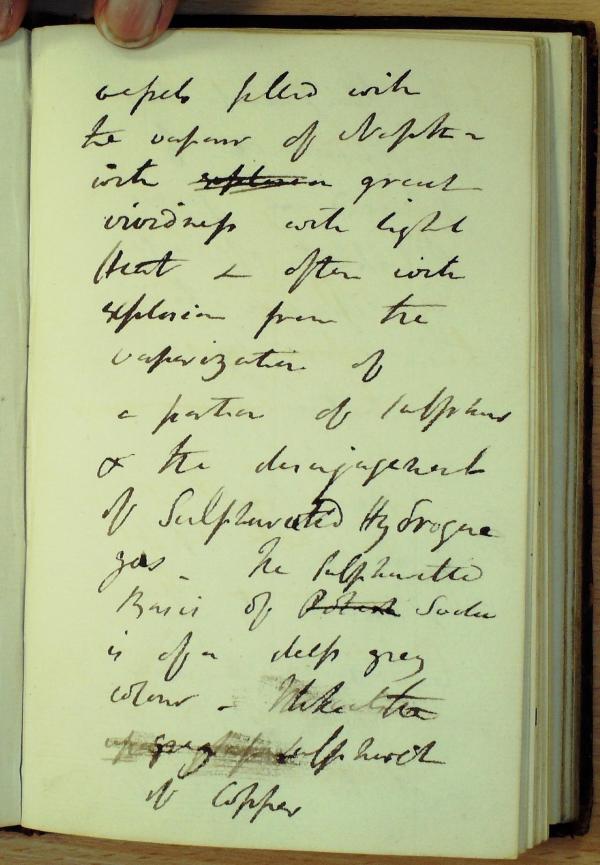 vessels filled with
the vapour of Naptha
with explosion great
vividness with light
Heat & often with
explosion from the
vaporization of
a portion of sulphur
& the disengagement
of Sulphuretted Hydrogene
gas - The sulphuretted
Basis of Potash Soda
is of a deep grey
colour - the
grey sulphuret
of Copper